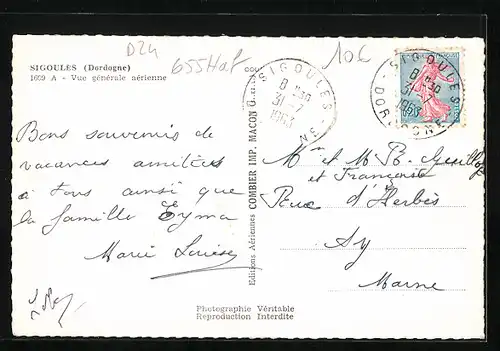 D24
655Haf
10€
SIGOULÈS (Dordogne)
1609 A - Vue générale aérienne
SIGOULÈS
8 H30
31-7
1963
SIGOULÈS
8 H30
31-7
1963
DORDOGNE
Bons souvenirs de
vacances amitiés
à tous ainsi que
la famille Eyma
Marie Louise
Editions Aériennes COMBIER IMP. MACON
Mr et Mme R.
et Françoise
Rue d'Herbès
Ay
Marne
Photographie Véritable
Reproduction Interdite